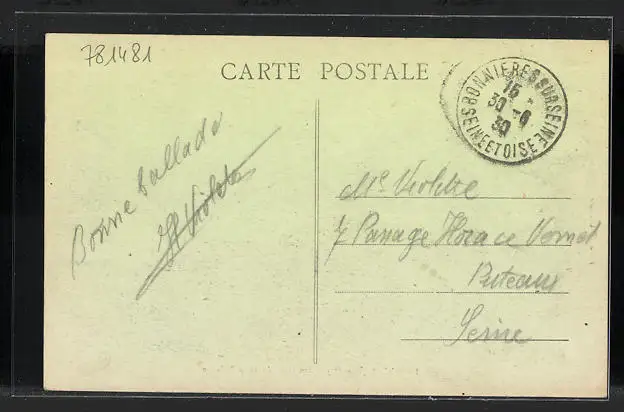 781481
CARTE POSTALE
BONNIERES SUR SEINE
15
30 -6
30
SEINE ET OISE
Bonne ballade
Violette
Me Violette
7 Passage Horace Vernet
Puteaux
Seine